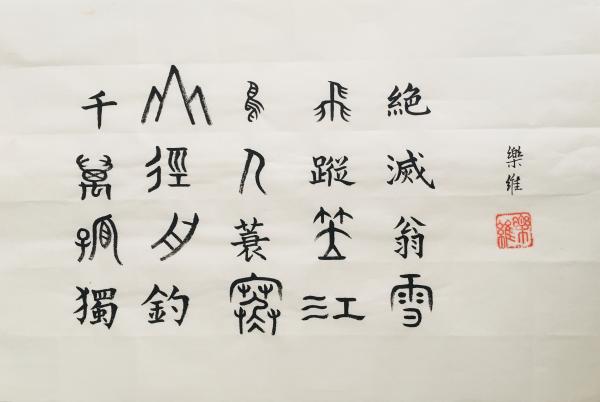 千山鳥飛絶
萬徑人蹤滅
孤舟蓑笠翁
獨釣寒江雪
樂維
樂維